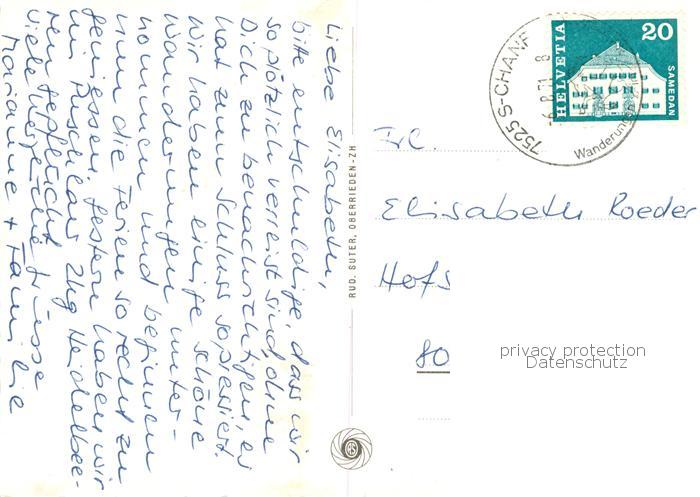 Liebe Elisabeth,
bitte entschuldige, dass wir
so plötzlich verreist sind, ohne
Dich zu benachrichtigen, es
hat zum Schluss so pressiert.
Wir haben einige schöne
Wanderungen unter-
nommen und beginnen
nun die Ferien so recht zu
geniessen. Gestern haben wir
im Puschlav 2kg Heidelbee-
ren gepflückt.
Viele herzliche Grüsse
Marianne + Familie
RUD. SUTER, OBERRIEDEN-ZH
HELVETIA
20
SAMEDAN
7525 S-CHANF
-6.8.71. 8
Wanderungen
Frl.
Elisabeth Roeder
Hofs
80
privacy protection
Datenschutz